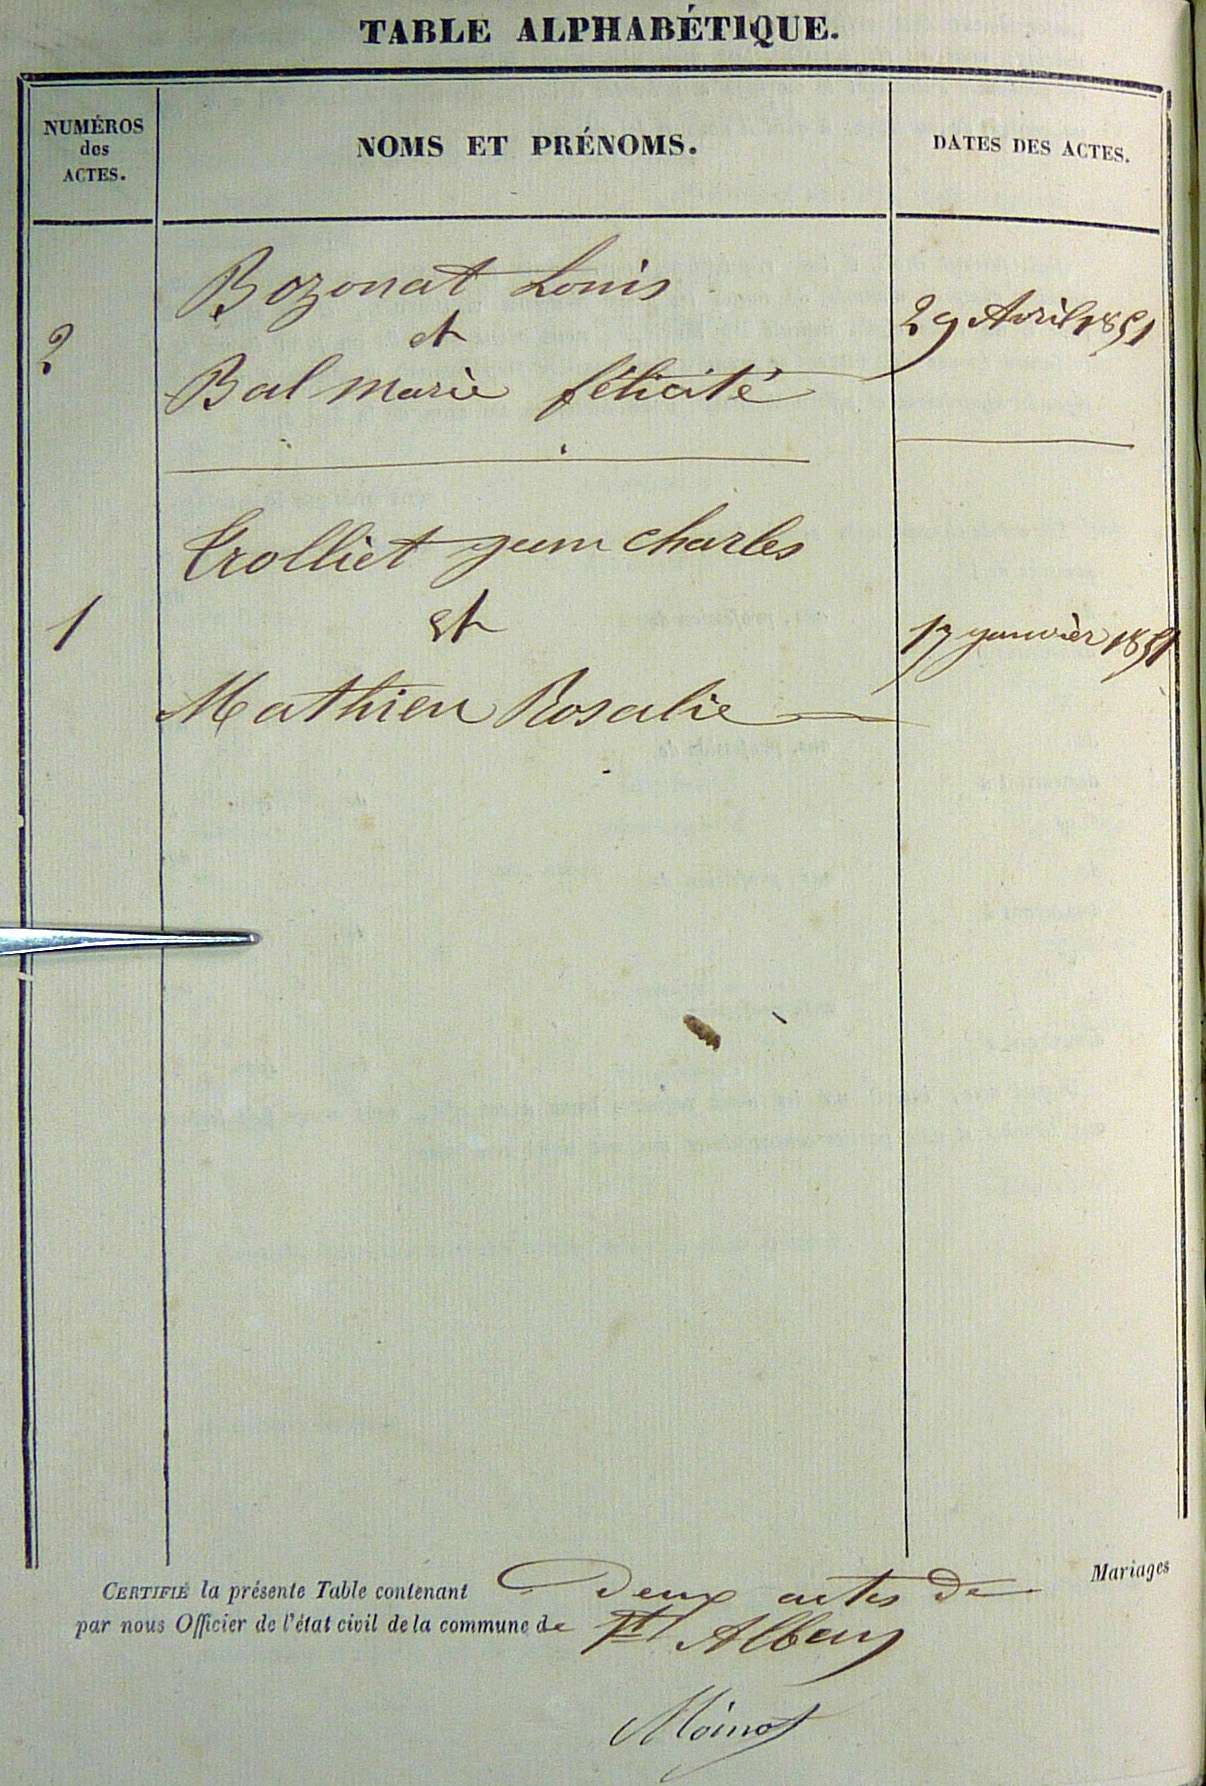 TABLE ALPHABÉTIQUE.
NUMÉROS
des
ACTES.
NOMS ET PRÉNOMS.
DATES DES ACTES.
Bozonat Louis
et
2
Bal marie félicité
29 Avril 1851
Trolliet jean Charles
1
et
17 janvier 1851
Mathieu Rosalie
CERTIFIÉ la présente Table contenant deux actes de Mariages
par nous Officier de l'état civil de la commune de St Alban
Moinot